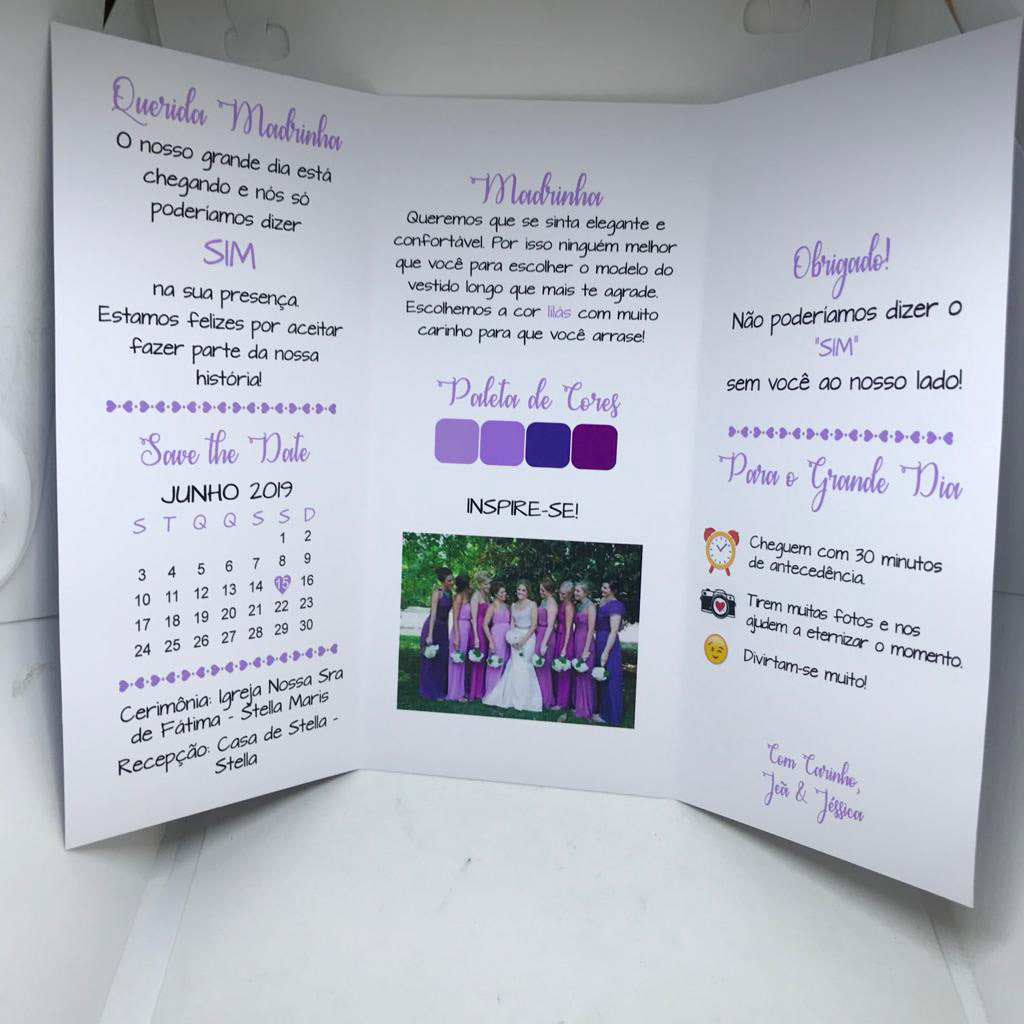 Querida Madrinha
O nosso grande dia está
chegando e nós só
poderíamos dizer
SIM
na sua presença.
Estamos felizes por aceitar
fazer parte da nossa
história!
Save the Date
JUNHO 2019
S T Q Q S S D
1 2
3 4 5 6 7 8 9
10 11 12 13 14 15 16
17 18 19 20 21 22 23
24 25 26 27 28 29 30
Cerimônia: Igreja Nossa Sra
de Fátima - Stella Maris
Recepção: Casa de Stella -
Stella
Madrinha
Queremos que se sinta elegante e
confortável. Por isso ninguém melhor
que você para escolher o modelo do
vestido longo que mais te agrade.
Escolhemos a cor lilás com muito
carinho para que você arrase!
Paleta de Cores
INSPIRE-SE!
Obrigado!
Não poderíamos dizer o
"SIM"
sem você ao nosso lado!
Para o Grande Dia
Cheguem com 30 minutos
de antecedência.
Tirem muitas fotos e nos
ajudem a eternizar o momento.
Divirtam-se muito!
Com Carinho,
Jeã & Jéssica